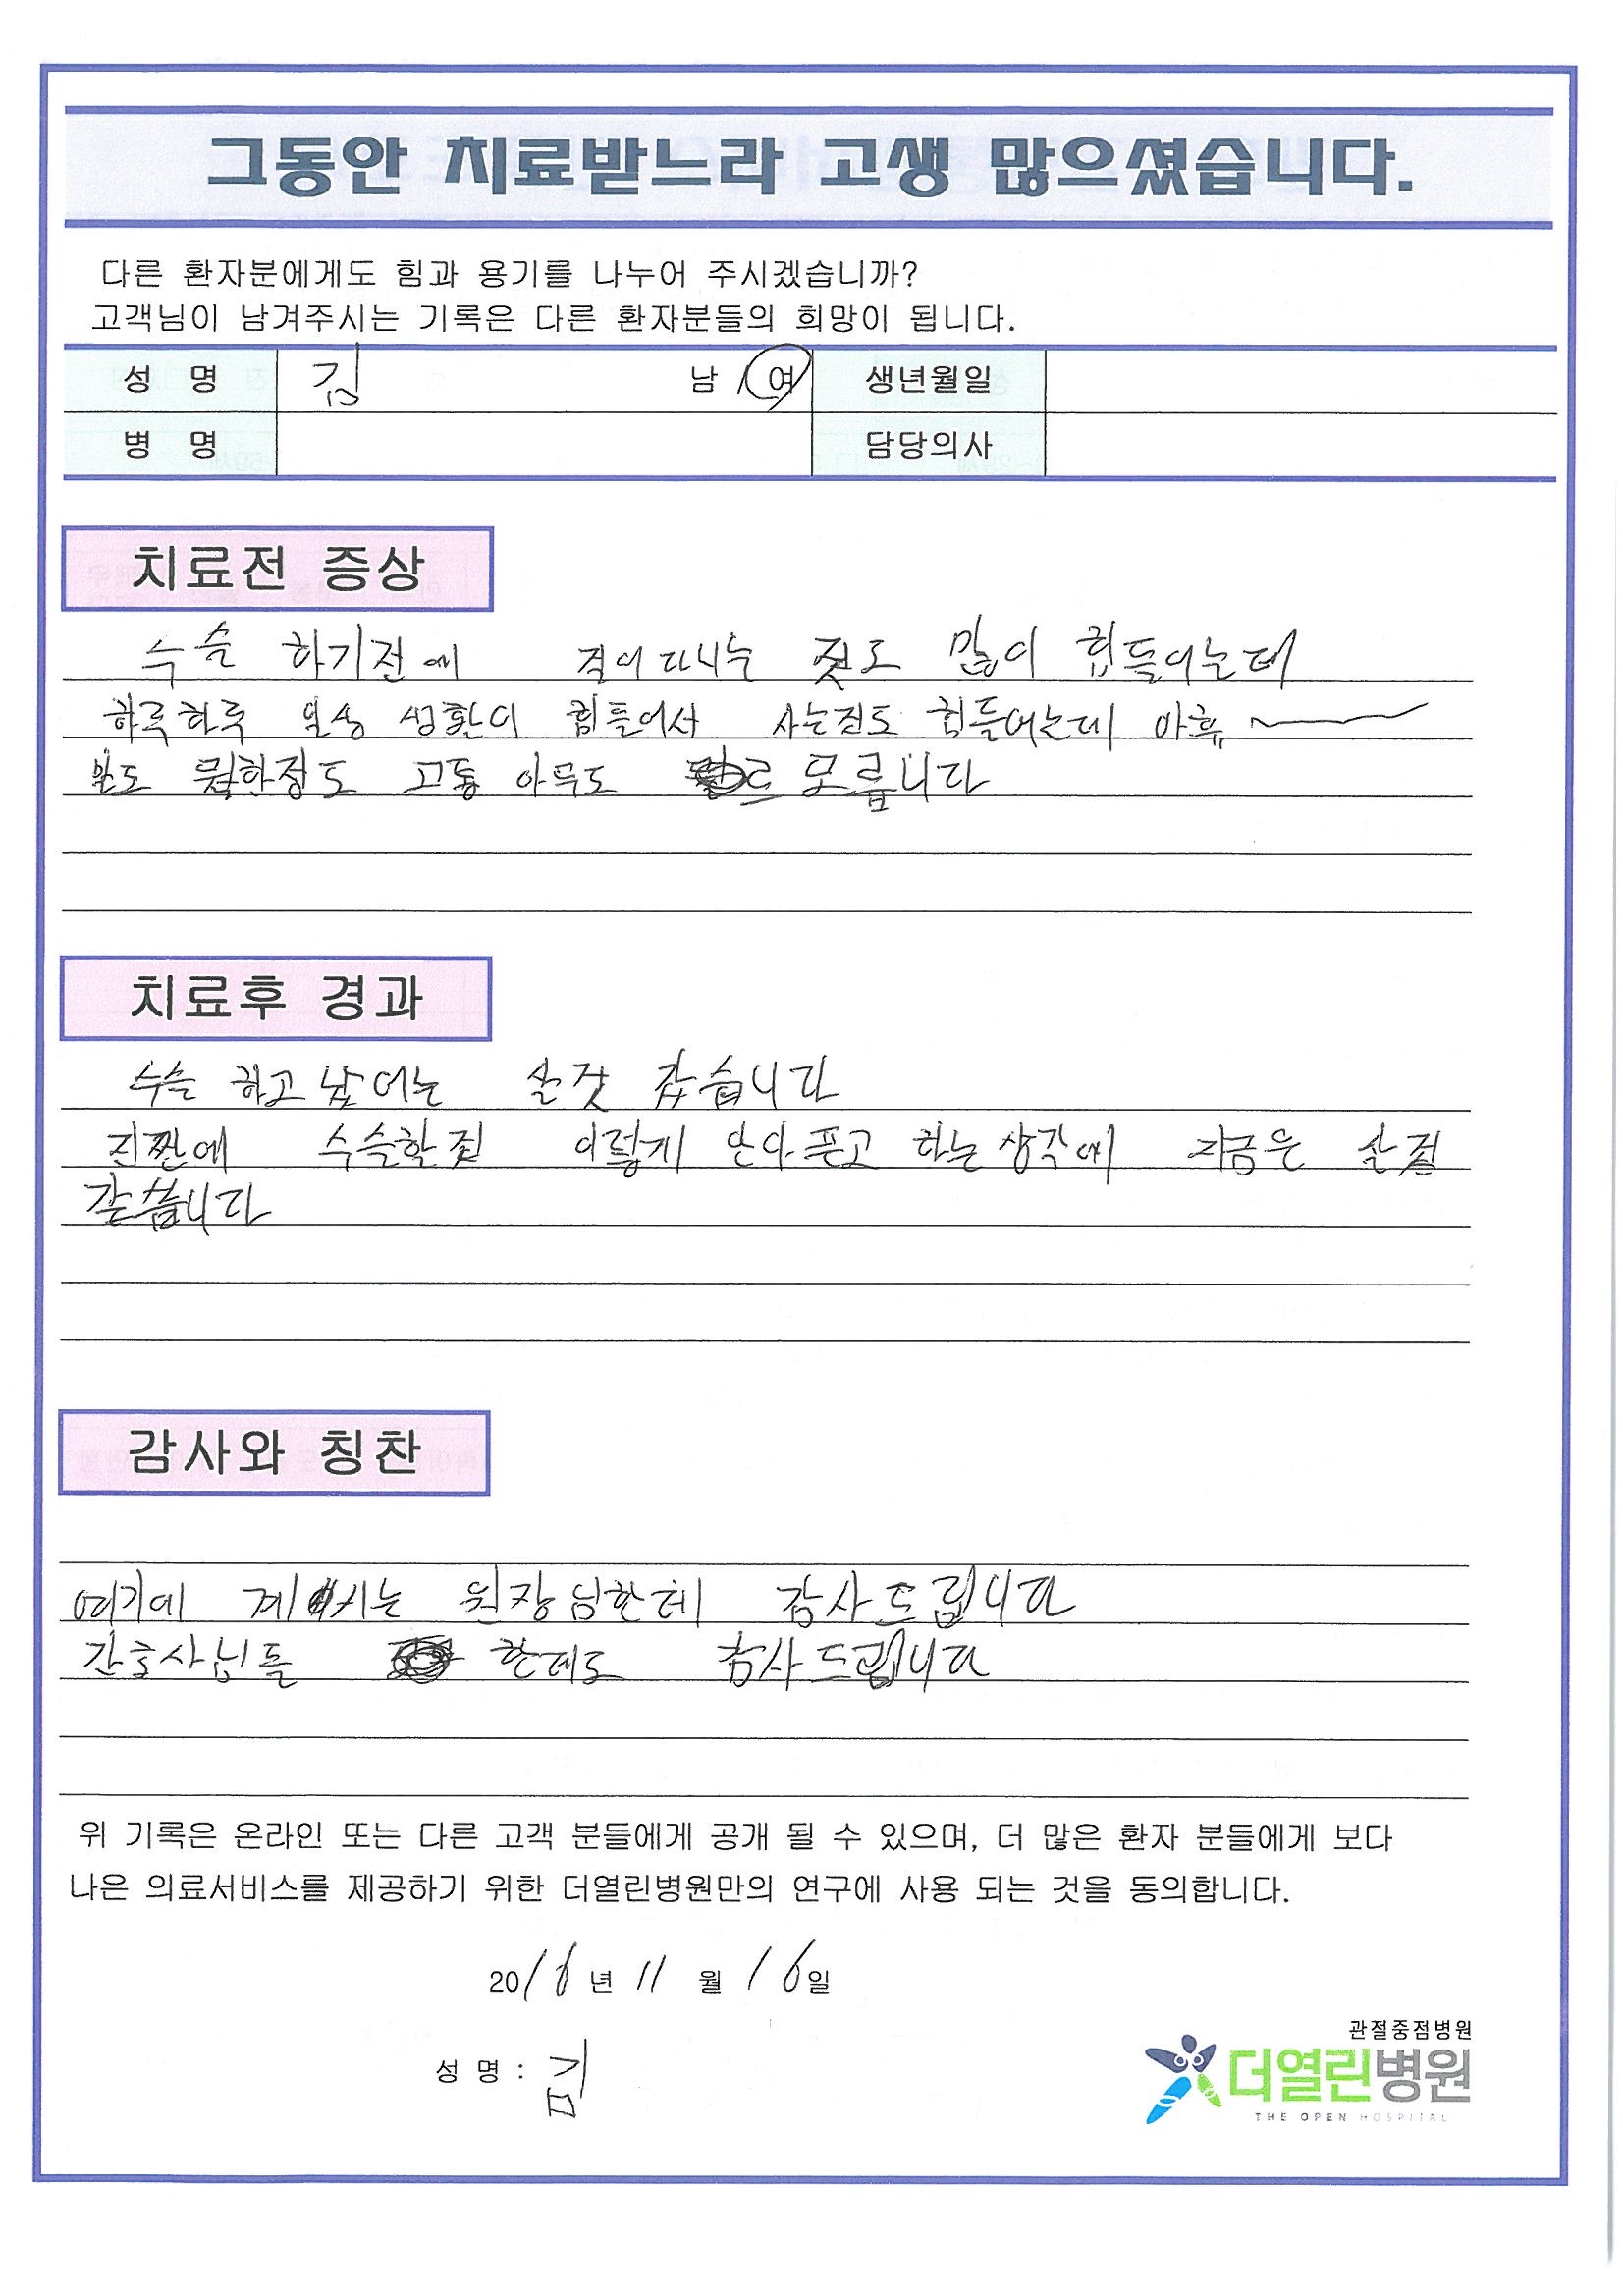 그동안 치료받느라 고생 많으셨습니다.
다른 환자분에게도 힘과 용기를 나누어 주시겠습니까?
고객님이 남겨주시는 기록은 다른 환자분들의 희망이 됩니다.
성 명 김 남 / 여 생년월일
병 명 담당의사
치료전 증상
수술 하기전에 걸어다니는 것도 많이 힘들어는데
하루하루 일상 생활이 힘들어서 사는것도 힘들어는데 아휴~
말도 못한정도 고통 아무도 모릅니다
치료후 경과
수술 하고 났어는 살것 갔습니다
진짠에 수술할것 이렇게 안아픈고 하는생각에 지금은 살것
같습니다
감사와 칭찬
여기에 계시는 원장님한테 감사드립니다
간호사님들 한테도 감사드립니다
위 기록은 온라인 또는 다른 고객 분들에게 공개 될 수 있으며, 더 많은 환자 분들에게 보다
나은 의료서비스를 제공하기 위한 더열린병원만의 연구에 사용 되는 것을 동의합니다.
2016년 11월 16일
관절중점병원
성 명 : 김
더열린병원
THE OPEN HOSPITAL